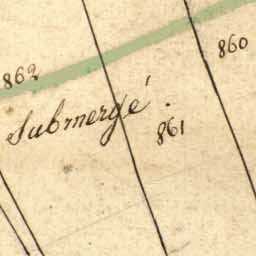 860
862
Submergé.
861